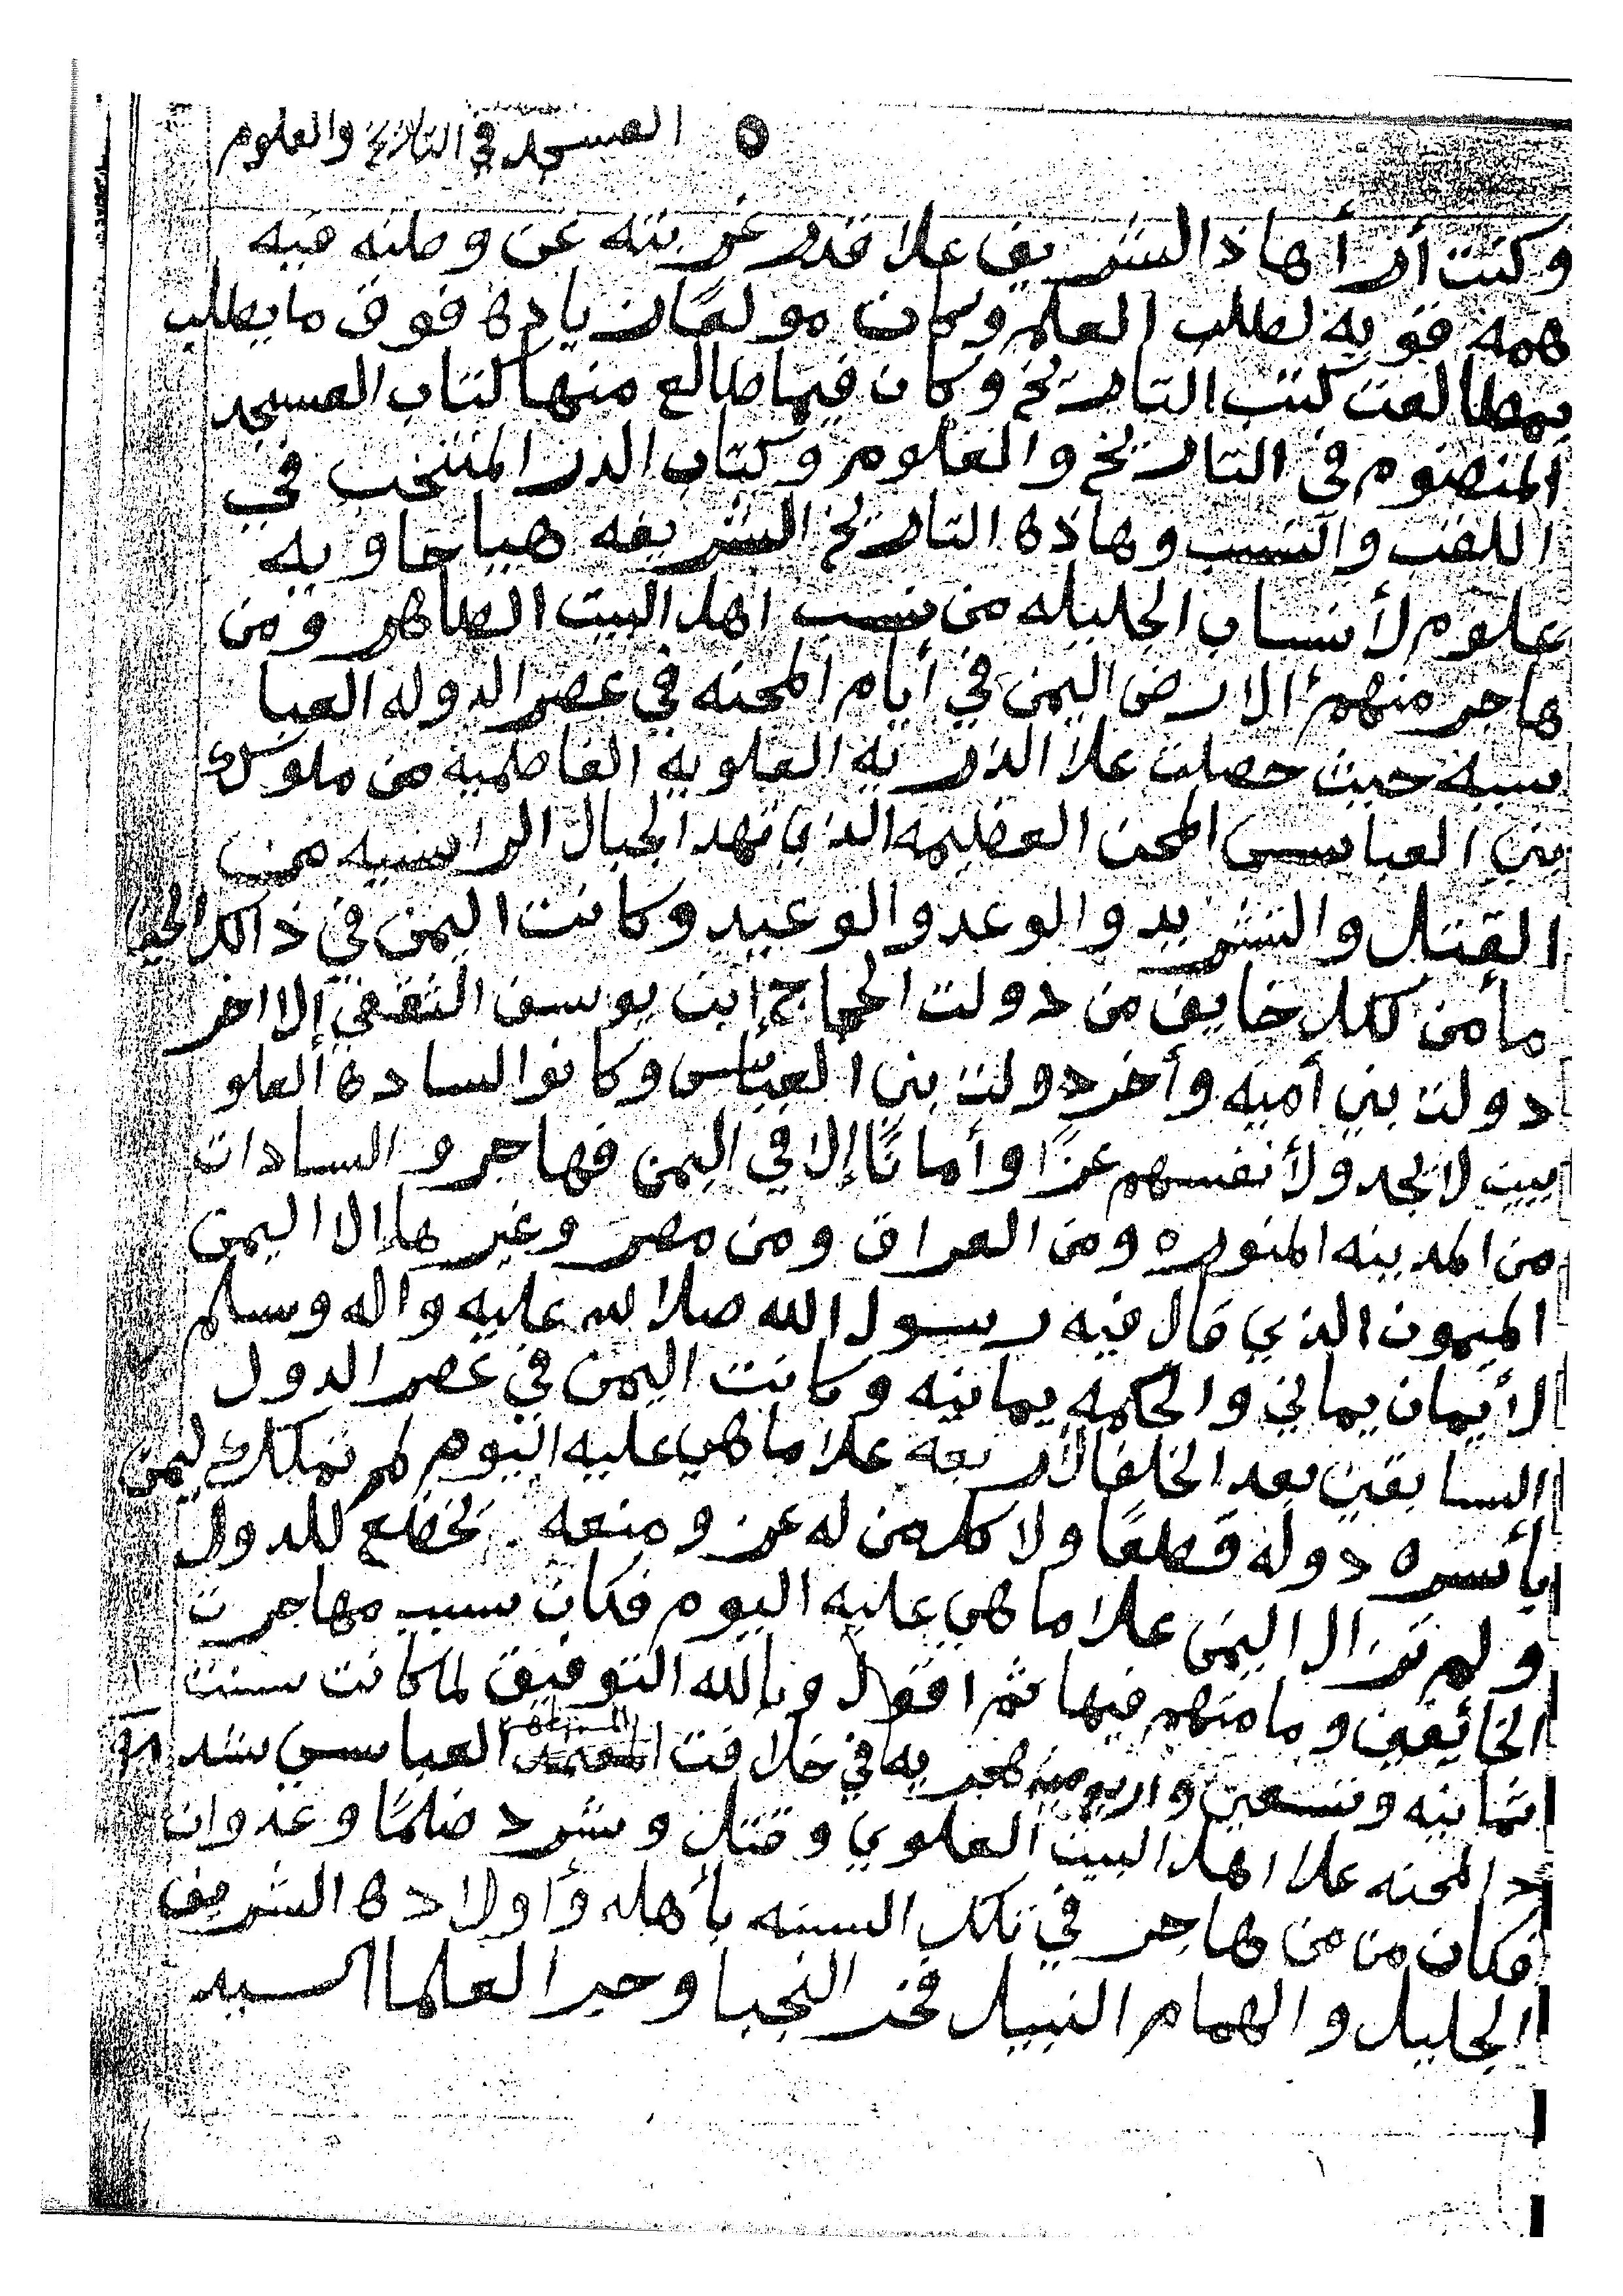 ٥ العسجد في التاريخ والعلوم
وكنت أرا هاذا لشريف علا قدر غربته عن وطنه فيه
همه قويه لطلب العلم وكان مولعًا زيادة فوق ما يطلب
بمطالعت كتب التاريخ وكان فيما طالع منها كتاب العسجد
المنضوم في التاريخ والعلوم وكتاب الدر المنتخب في
اللقب والنسب وهاذه التاريخ الشريفه هيا حاويه
علوم لأنساب الجليله من نسب اهل البيت الطاهر ومن
هاجر منهم الا رض اليمن في أيام المحنه في عصر الدوله العبا
سيه حيث حصلت علا الذريه العلويه الفاطميه من ملوك
بني العباسي المحن العظيمه الذي تهد الجبال الراسيه من
القتل والتشريد والوعد والوعيد وكانت اليمن في ذالك الحين
مأمن كلل خايف من دولت الحجاج ابن يوسف الثقفي إلا اخر
دولت بني أميه وأخر دولت بني العباس وكانو السادة العلو
يين لا يجدو لأنفسهم عزًا وأمانًا إلا في اليمن فهاجرو السادات
من المدينه المنوره ومن العراق ومن مصر وغيرها إلا اليمن
الميمون الذي قال فيه رسول الله صلا لله عليه واله وسلم
لأيمان يماني والحكمه يمانيه وكانت اليمن في عصر الدول
السابقين بعد الخلفا لأربعه علا ما هي عليه اليوم لم تملك ليمن
بأسره دوله قطعًا ولا كل من له عز ومنعه يخضع للدول
ولم تزال اليمن علا ما هي عليه اليوم فكان سبب مهاجرت
الخائفين ومامنهم فيها ثم اقول وبالله التوفيق لما كانت سنت
ثمانيه وتسعين واربعميه هجريه في خلافت المستظهر العباسي شد
د المحنه علا اهل البيت العلوي وقتل وشرد ضلمًا وعدوان
فكان من من هاجر في تلك السنه بأهله وأولاده الشريف
الجليل والهمام النبيل فخر النجبا وحبر العلما السيد